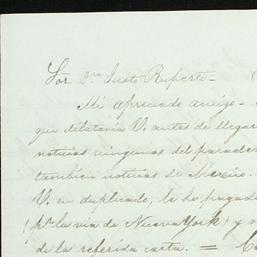 Sor. Dn. Justo Ruperto-
Mi apreciado amigo-
que dilataria V. antes de llegar
noticias ningunas del parader
tambien noticias de Marcio.
V. en duplicado, la he pagado
(pr. la via de Nueva York) y
de la referida carta. =